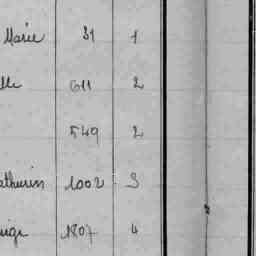 Marie 31 1
lle 611 2
549 2
athurin 1002 3
1807 4